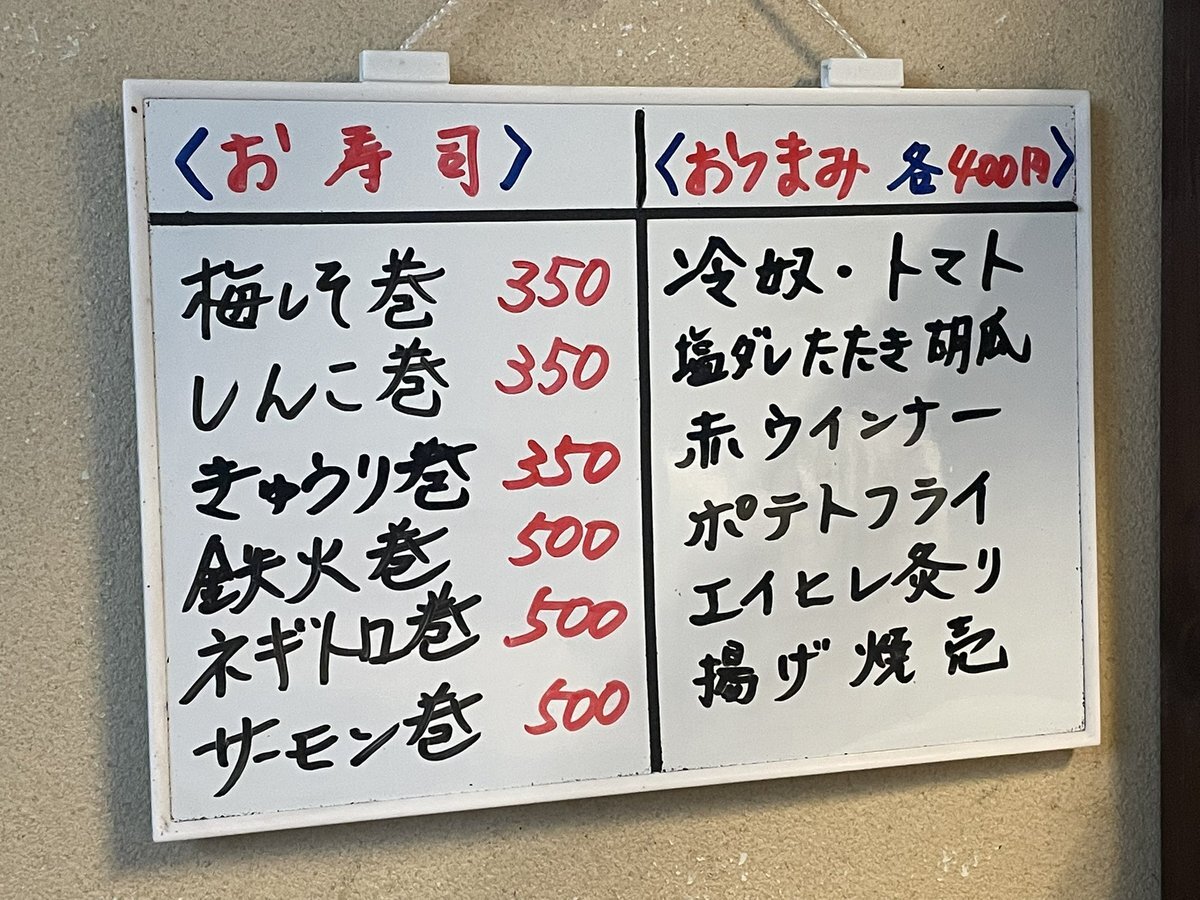 〈お寿司〉
梅しそ巻 350
しんこ巻 350
きゅうり巻 350
鉄火巻 500
ネギトロ巻 500
サーモン巻 500
〈おつまみ 各400円〉
冷奴・トマト
塩ダレたたき胡瓜
赤ウインナー
ポテトフライ
エイヒレ炙り
揚げ焼売